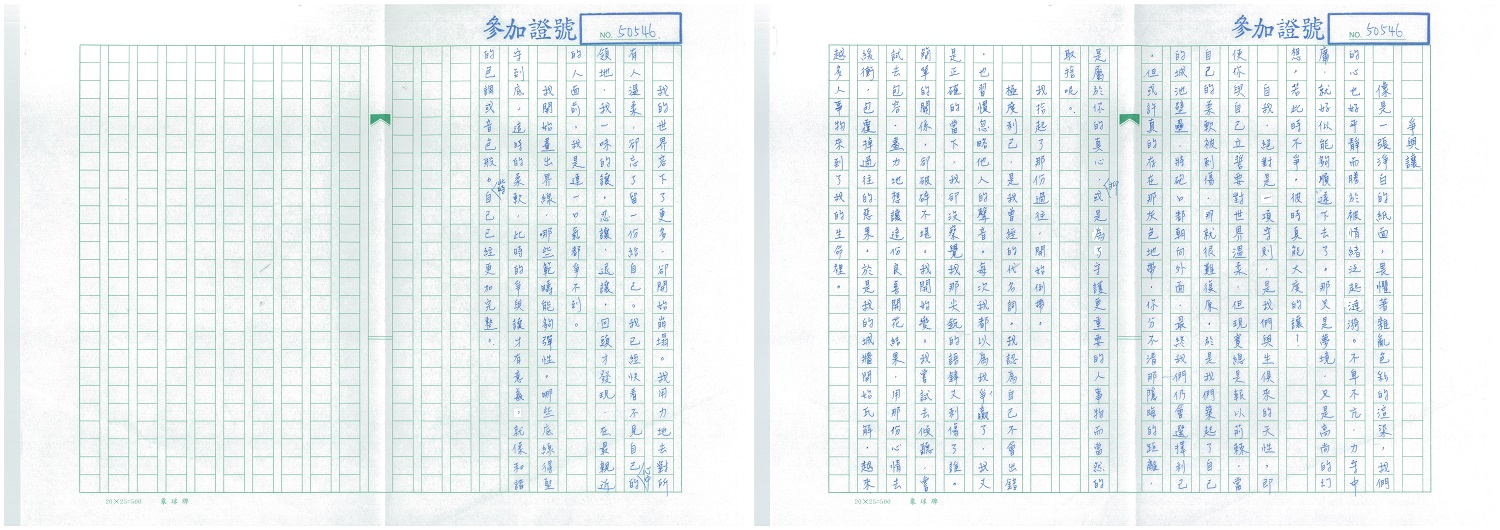 參加證號
NO. 50546
爭與讓
像是一張淨白的紙面，畏懼著雜亂色彩的渲染，我們
的心也好平靜而勝於被情緒泛起漣漪。不卑不亢，力守中
庸，就好似能夠順遂下去了。那又是夢境，又是高尚的幻
想。若此時不爭，彼時真能大度的讓！
自我，絕對是一項守則，是我們與生俱來的天性，即
便你現自己立誓要對世界溫柔，但現實總是報以荊棘，當
自己的柔軟被刺傷，那就很難復原，於是我們築起了自己
的城池壁壘，將砲口都朝向外面，最終我們仍會選擇利己
。但或許真的存在那灰色地帶，你分不清那隱晦的距離，
是屬於你的真心，抑或是為了守護更重要的人事物而當然的
取捨呢。
我拾起了那份過往，開始倒帶。
極度利己，是我曾經的代名詞。我認為自己不會出錯
，也習慣忽略他人的聲音，每次我都以為我爭贏了，我又
是正確的當下，我卻沒察覺我那尖銳的語鋒又刺傷了誰。
簡單的關係，卻破碎不堪。我開始變。我嘗試去傾聽，嘗
試去包容，盡力地想讓這份良善開花結果，用那份心情去
緩衝，包覆掉過往的惡果。於是我的城牆開始瓦解，越來
越多人事物來到了我的生命裡。
參加證號
NO. 50546
我的世界容下了更多，卻開始崩塌。我用力地去對所
有人溫柔，卻忘了留一份給自己。我已經快看不見自己心中的
領地，我一味的讓，忍讓，退讓，回頭才發現，在最親近
的人面前，我是連一口氣都爭不到。
我開始畫出界線，哪些範疇能夠彈性。哪些底線得堅
守到底。這時的柔軟，此時的爭與讓才有意義，就像和諧
的色調或音色般。此時自己已經更加完整。
20×25=500 象球牌
20×25=500 象球牌